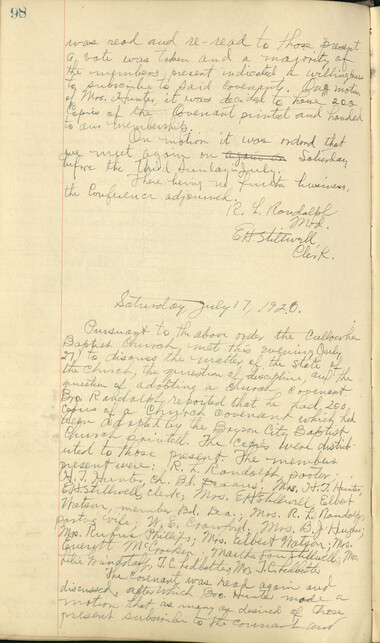 98
was read and re-read to those present
a vote was taken and a majority of
the members present indicated a willingness
to subscribe to said Covenant. On motion
of Mrs. Hunter, it was decided to have 200
Copies of the Covenant printed and handed
to our membership.
On motion it was ordered that
we meet again on again on Saturday
before the third Sunday July.
There being no further business,
the Conference adjourned.
R. L. Randolph
Mod.
E. H. Stillwell,
Clerk.
Saturday July 17, 1920.
Pursuant to the above order the Cullowhee
Baptist Church met this evening July
to discuss the matter of the State of
the Church, the question of discipline, and the
question of adopting a Church Covenant
Bro. Randolph reported that he had 200
Copies of a Church Covenant which had
been adopted by the Bryson City Baptist
Church printed. The Copies were distrib-
uted to those present. The members
present were: R. L. Randolph, pastor,
Mrs. H. T. Hunter,
E. H. Stillwell, Clerk; Mrs. E. H. Stillwell, Elbert
Watson, member Bd. Dea.; Mrs. R. L. Randolph,
pastor's wife; W. E. Crawford; Mrs. B. J.
Mrs. Rufus Phillips; Mrs. Elbert Watson; Mrs.
Martha Lou Stillwell; Mrs.
T. C. Ledbetter, Mrs. T. C. Ledbetter
The Covenant was read again and
discussed, after which Bro. Hunter made a
motion that as many as desired of those
present subscribe to the covenant and